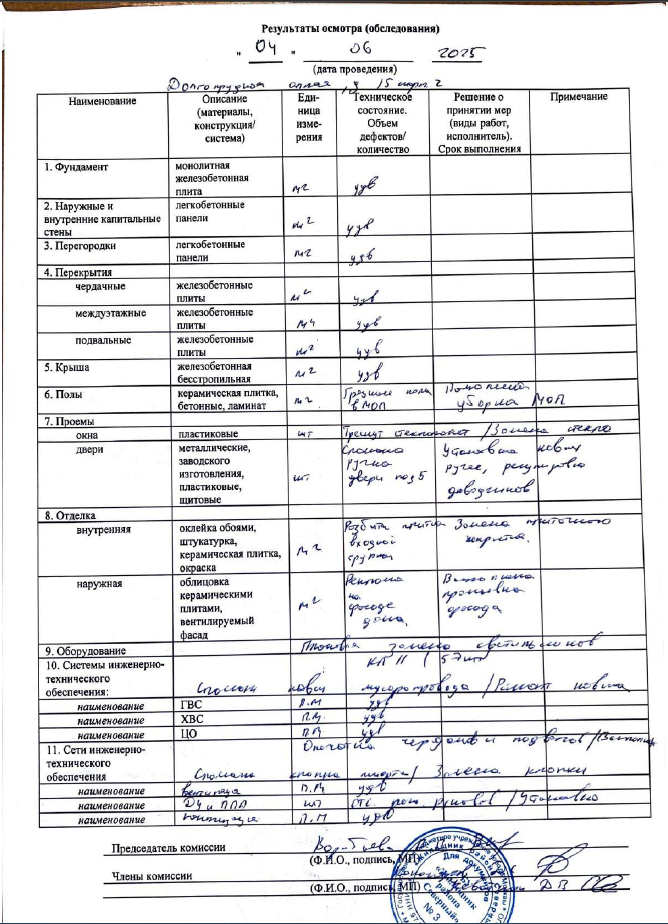 Результаты осмотра (обследования)
" 04 " 06 2025
(дата проведения)
Долгопрудная аллея, 15 корп. 2
Наименование
Описание
(материалы,
конструкция/
система)
Еди-
ница
изме-
рения
Техническое
состояние.
Объем
дефектов/
количество
Решение о
принятии мер
(виды работ,
исполнитель).
Срок выполнения
Примечание
1. Фундамент
монолитная
железобетонная
плита
м2
удв
2. Наружные и
внутренние капитальные
стены
легкобетонные
панели
м2
удв
3. Перегородки
легкобетонные
панели
м2
удв
4. Перекрытия
чердачные
железобетонные
плиты
м2
удв
междуэтажные
железобетонные
плиты
м2
удв
подвальные
железобетонные
плиты
м2
удв
5. Крыша
железобетонная
бесстропильная
м2
удв
6. Полы
керамическая плитка,
бетонные, ламинат
м2
Грязные полы
в МОП
уборка МОП
7. Проемы
окна
пластиковые
шт
Треснут стеклопакет / Замена стекло
двери
металлические,
заводского
изготовления,
пластиковые,
щитовые
шт.
Сломана
ручка
двери под 5
Установка новых
ручек, регулировка
доводчиков
8. Отделка
внутренняя
оклейка обоями,
штукатурка,
керамическая плитка,
окраска
м2
Разбита плитка
входной
группы
Замена плиточного
покрытия.
наружная
облицовка
керамическими
плитами,
вентилируемый
фасад
м2
на
фасаде
дома
фасада
9. Оборудование
замена светильников
10. Системы инженерно-
технического
обеспечения:
Сломан ковш мусоропровода / Ремонт ковша
наименование
ГВС
п.м
удв
наименование
ХВС
п.м.
удв
наименование
ЦО
п.м
удв
11. Сети инженерно-
технического
обеспечения
чердаков и подвалов /
Сломана кнопка лифта / Замена кнопки
наименование
п.м
удв
наименование
ДУ и ППА
шт
наименование
п.м
удв
Председатель комиссии
(Ф.И.О., подпись, МП)
Члены комиссии
(Ф.И.О., подпись, МП)
Для документов